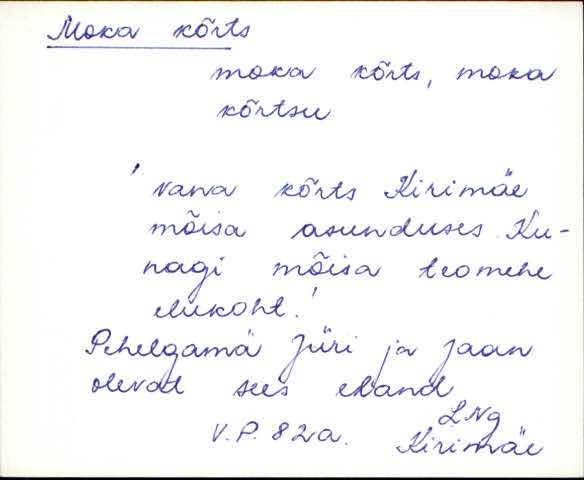 Moka kõrts
moka kõrts, moka
kõrtsu
' vana kõrts Kirimäe
mõisa asunduses. Ku-
nagi mõisa teomehe
elukoht.'
Pehelgamä Jüri ja Jaan
olevat sees eland
V.P. 82a. LNg
Kirimäe